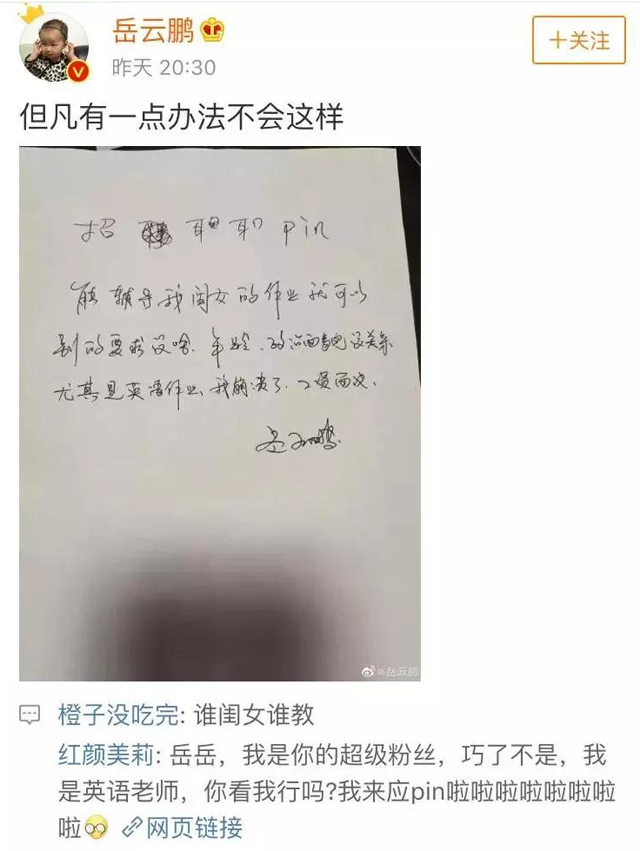 岳云鹏
昨天 20:30
+关注
但凡有一点办法不会这样
招 Pin
能辅导我闺女的作业就可以
别的要求没啥.年龄、没关系
尤其是英语作业,我崩溃了.工资面议.
岳云鹏.
@岳云鹏
橙子没吃完: 谁闺女谁教
红颜美莉: 岳岳，我是你的超级粉丝，巧了不是，我
是英语老师，你看我行吗?我来应pin啦啦啦啦啦啦啦
啦 网页链接